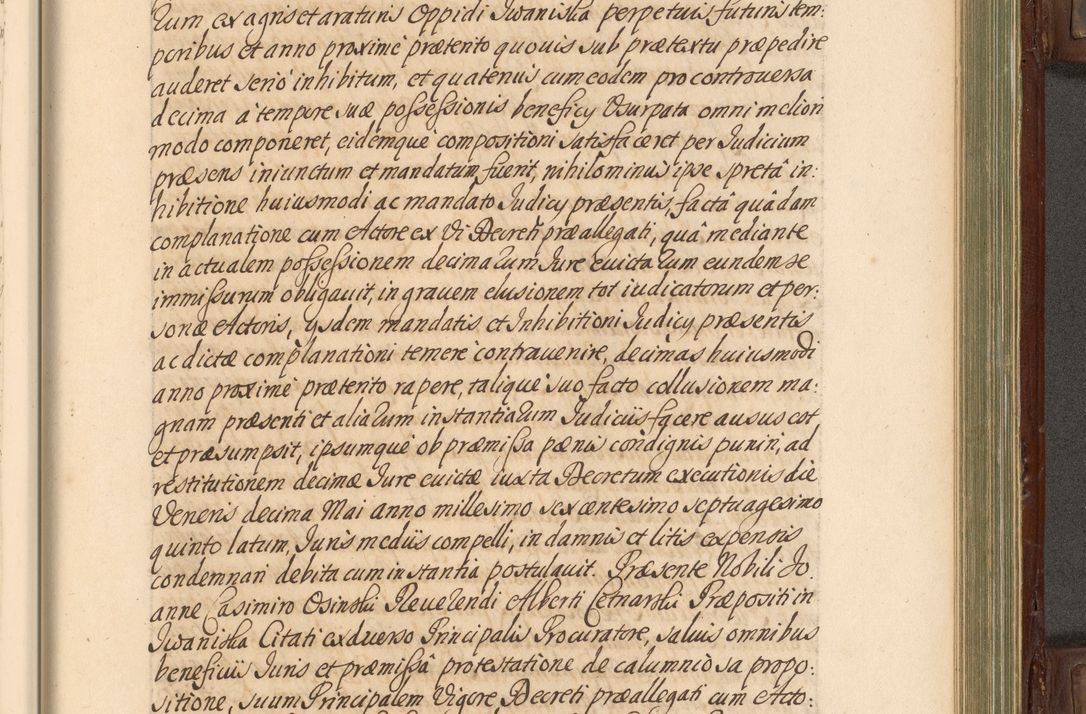 rum ex agris et araturis Oppidi Iwaniska perpetuis futuris tem:
poribus et anno proximé prætento quouis sub prætextu præpedire
auderet serió inhibitum, et quatenus cum eodem pro controuersa
decima á tempore suæ possessionis beneficy Vsurpata omni meliori
modo componeret, eidemque compositioni satisfaceret per Iudicium
præsens iniunctum et mandatum fuerit, nihilominus ipse spretâ in:
hibitione huiusmodi ac mandato Iudicy præsentis, factâ quâdam
complanatione cum Actore ex Vi Decreti præallegati, quâ mediante
in actualem possessionem decimarum Iure euictarum eundem se
immissurum obligauit, in grauem elusionem tot iudicatorum et per:
sonæ Actoris, ysdem mandatis et Inhibitioni Iudicy præsentis
ac dictæ complanationi temeré contrauenire, decimas huiusmodi
anno proximé prætento rapere, talique suo facto collusionem ma:
gnam præsenti et aliarum instantiarum Iudicijs facere ausus est
et præsumpsit, ipsumque ob præmissa pænis condignis puniri, ad
restitutionem decimæ Iure euictæ iuxta Decretum executionis die
Veneris decima Mai anno millesimo sexcentesimo septuagesimo
quinto latum, Iuris medijs compelli, in damnis et litis expensis
condemnari debita cum instantia postulauit. Præsente Nobili Io
anne Casimiro Osinski Reuerendi Alberti Cetnarski Præpositi in
Iwaniska Citati ex duerso Principalis Procuratore, saluis omnibus
beneficijs Iuris et præmissâ protestatione de calumniosa propo:
sitione, suum Principalem Vigore Decreti præallegati cum Acto: